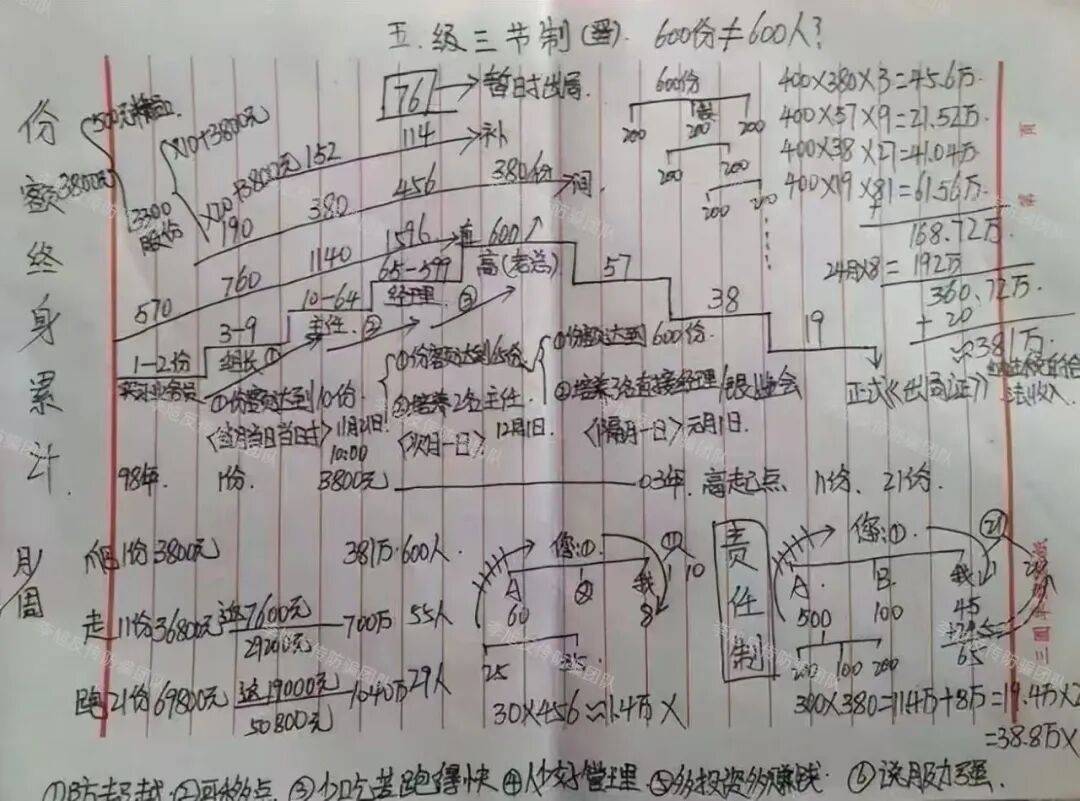 五级三节制(晋). 600份≠600人?
份额终身累计.
500元
3800元
3300
股份
×10+3800元
×20+3800元
76 → 暂时出局
152 114 → 补
190 380 456 380份 → 间
570 760 1140 1596 → 直
1-2份
实习业务员
3-9
组长
10-64
主任
65-599
经理
600
高(老总)
57
38
19
正式《出局证》
600份
200 200 200
200 200
200 200
400×380×3=45.6万
400×57×9=21.52万
400×38×27=41.04万
400×19×81=61.56万
168.72万
24月×8=192万
360.72万
+20
≈381万
合法收入
①份额达到10份
〈当月当日当日时〉11月21日
10:00
①份额达到65份
②培养2名主任
〈次月一日〉12月1日
①份额达到600份
②培养3名直接经理
〈隔月一日〉元月1日
98年 1份 3800元 03年. 高起点、11份、21份.
月/周
1份3800元 381万·600人.
走11份36800元 返7600元 700万 55人
29200元
跑21份69800元 返19000元 1040万29人
50800元
您:①
A ② 我
60 8
25 25
⑪
10
30×456≈1.4万×
责任制
您:①
A B 我
500 100 45
65
200 100 200
㉑
300×380=11.4万+8万=19.4万×2
=38.8万×
①防超越②可移点③少吃苦跑得快④人少好管理⑤多投资多赚钱⑥说服力强